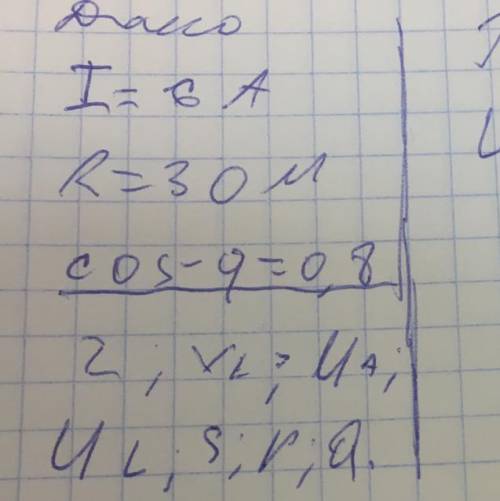 Дано
I = 6 А
R = 3 Ом
cos-φ = 0,8
Z; XL; UA;
UL; S; P; Q.